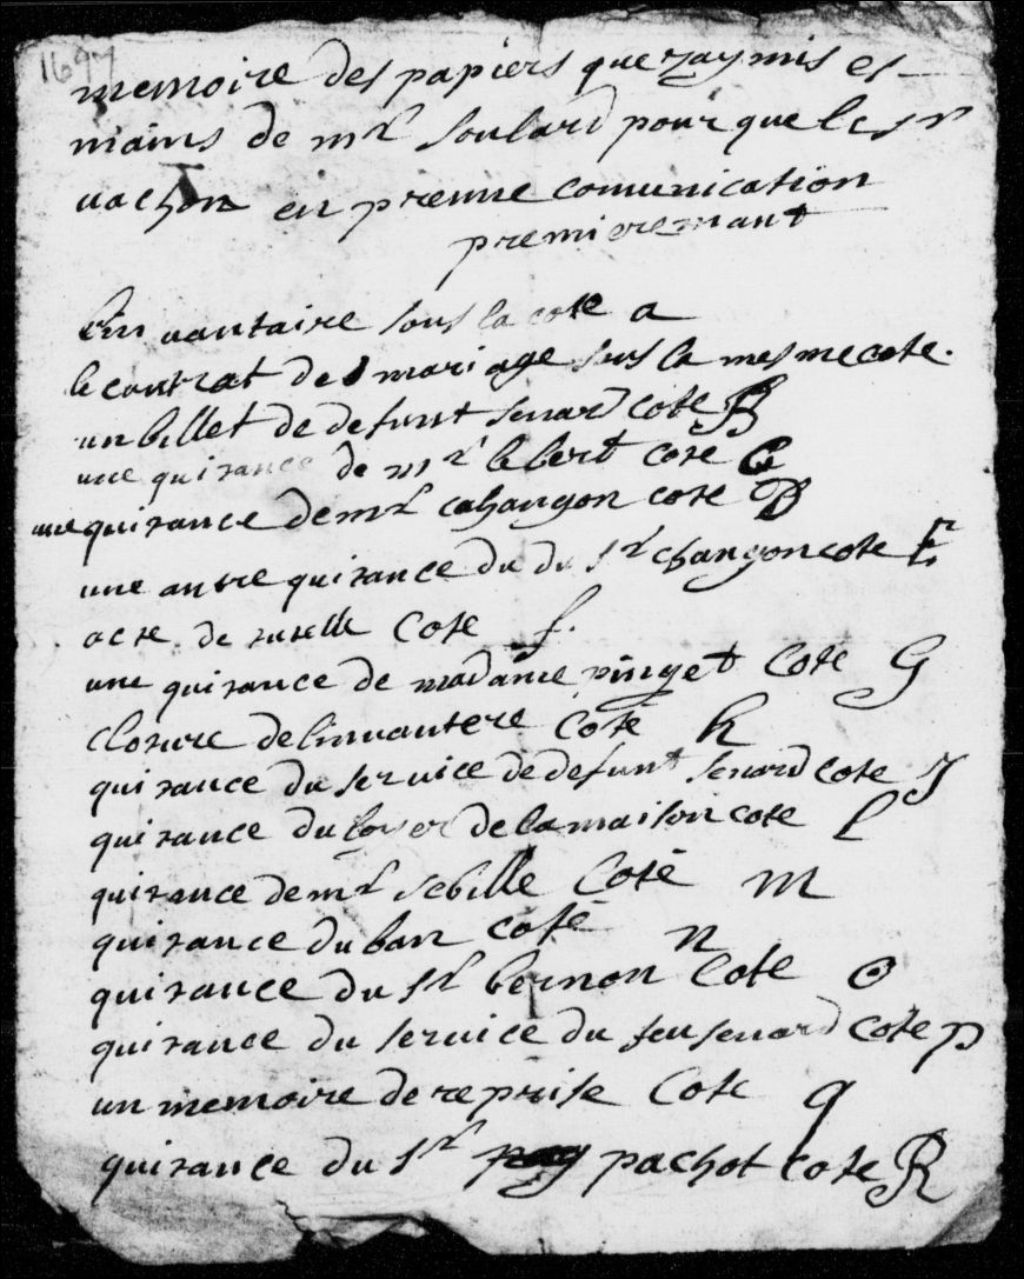 1697
memoire des papiers que jay mis es
mains de mr soulard pour que le sr
vachon en prenne comunication
premieremant
Linvantaire sous la cote a
le contrat de mariage sous la mesme cote.
un billet de defunt senard cote B
une quitance de mr lebert cote C
une quitance de mr cahangon cote D
une autre quitance du du sr changon cote E
acte de tutelle cote f.
une quitance de madame pinget cote G
closture de linvantere cote h
quitance du service de defunt senard cote J
quitance du loyer de la maison cote l
quitance de mr sebille cote m
quitance du ban cote n
quitance du sr bernon cote o
quitance du service du feu senard cote p
un memoire de reprise cote q
quitance du sr pachot cote R